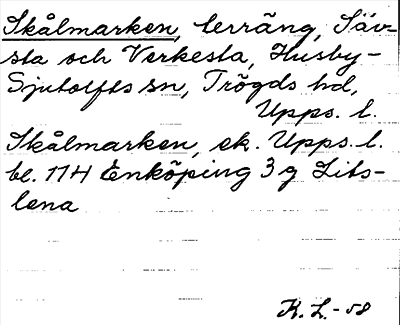 Skålmarken, terräng, Säv-
sta och Verkesta, Husby-
Sjutolfts sn, Trögds hd,
Upps. l.
Skålmarken, ek. Upps. l.
bl. 114 Enköping 3 g Lits-
lena
K. L.-58